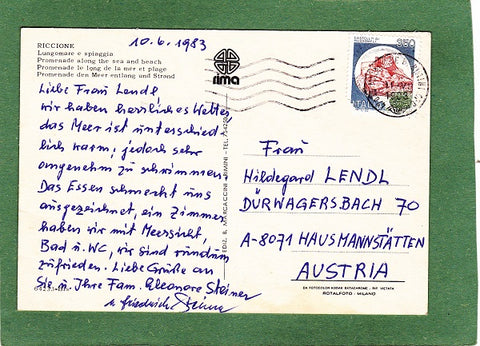 10.6.1983
RICCIONE
Lungomare e spiaggia
Promenade along the sea and beach
Promenade le long de la mer et plage
Promenade den Meer entlang und Strand
rima
Liebe Frau Lendl
wir haben herrliches Wetter
das Meer ist unterschied-
lich warm, jedoch sehr
angenehm zu schwimmen.
Das Essen schmeckt uns
ausgezeichnet, ein Zimmer
haben wir mit Meersicht,
Bad u. WC, wir sind rundum
zufrieden. Liebe Grüße an
Sie u. Ihre Fam. Eleonore Steiner
u. Friedrich
350
ITALIA
Frau
Hildegard LENDL
DÜRWAGERSBACH 70
A-8071 HAUSMANNSTÄTTEN
AUSTRIA
ROTALFOTO - MILANO